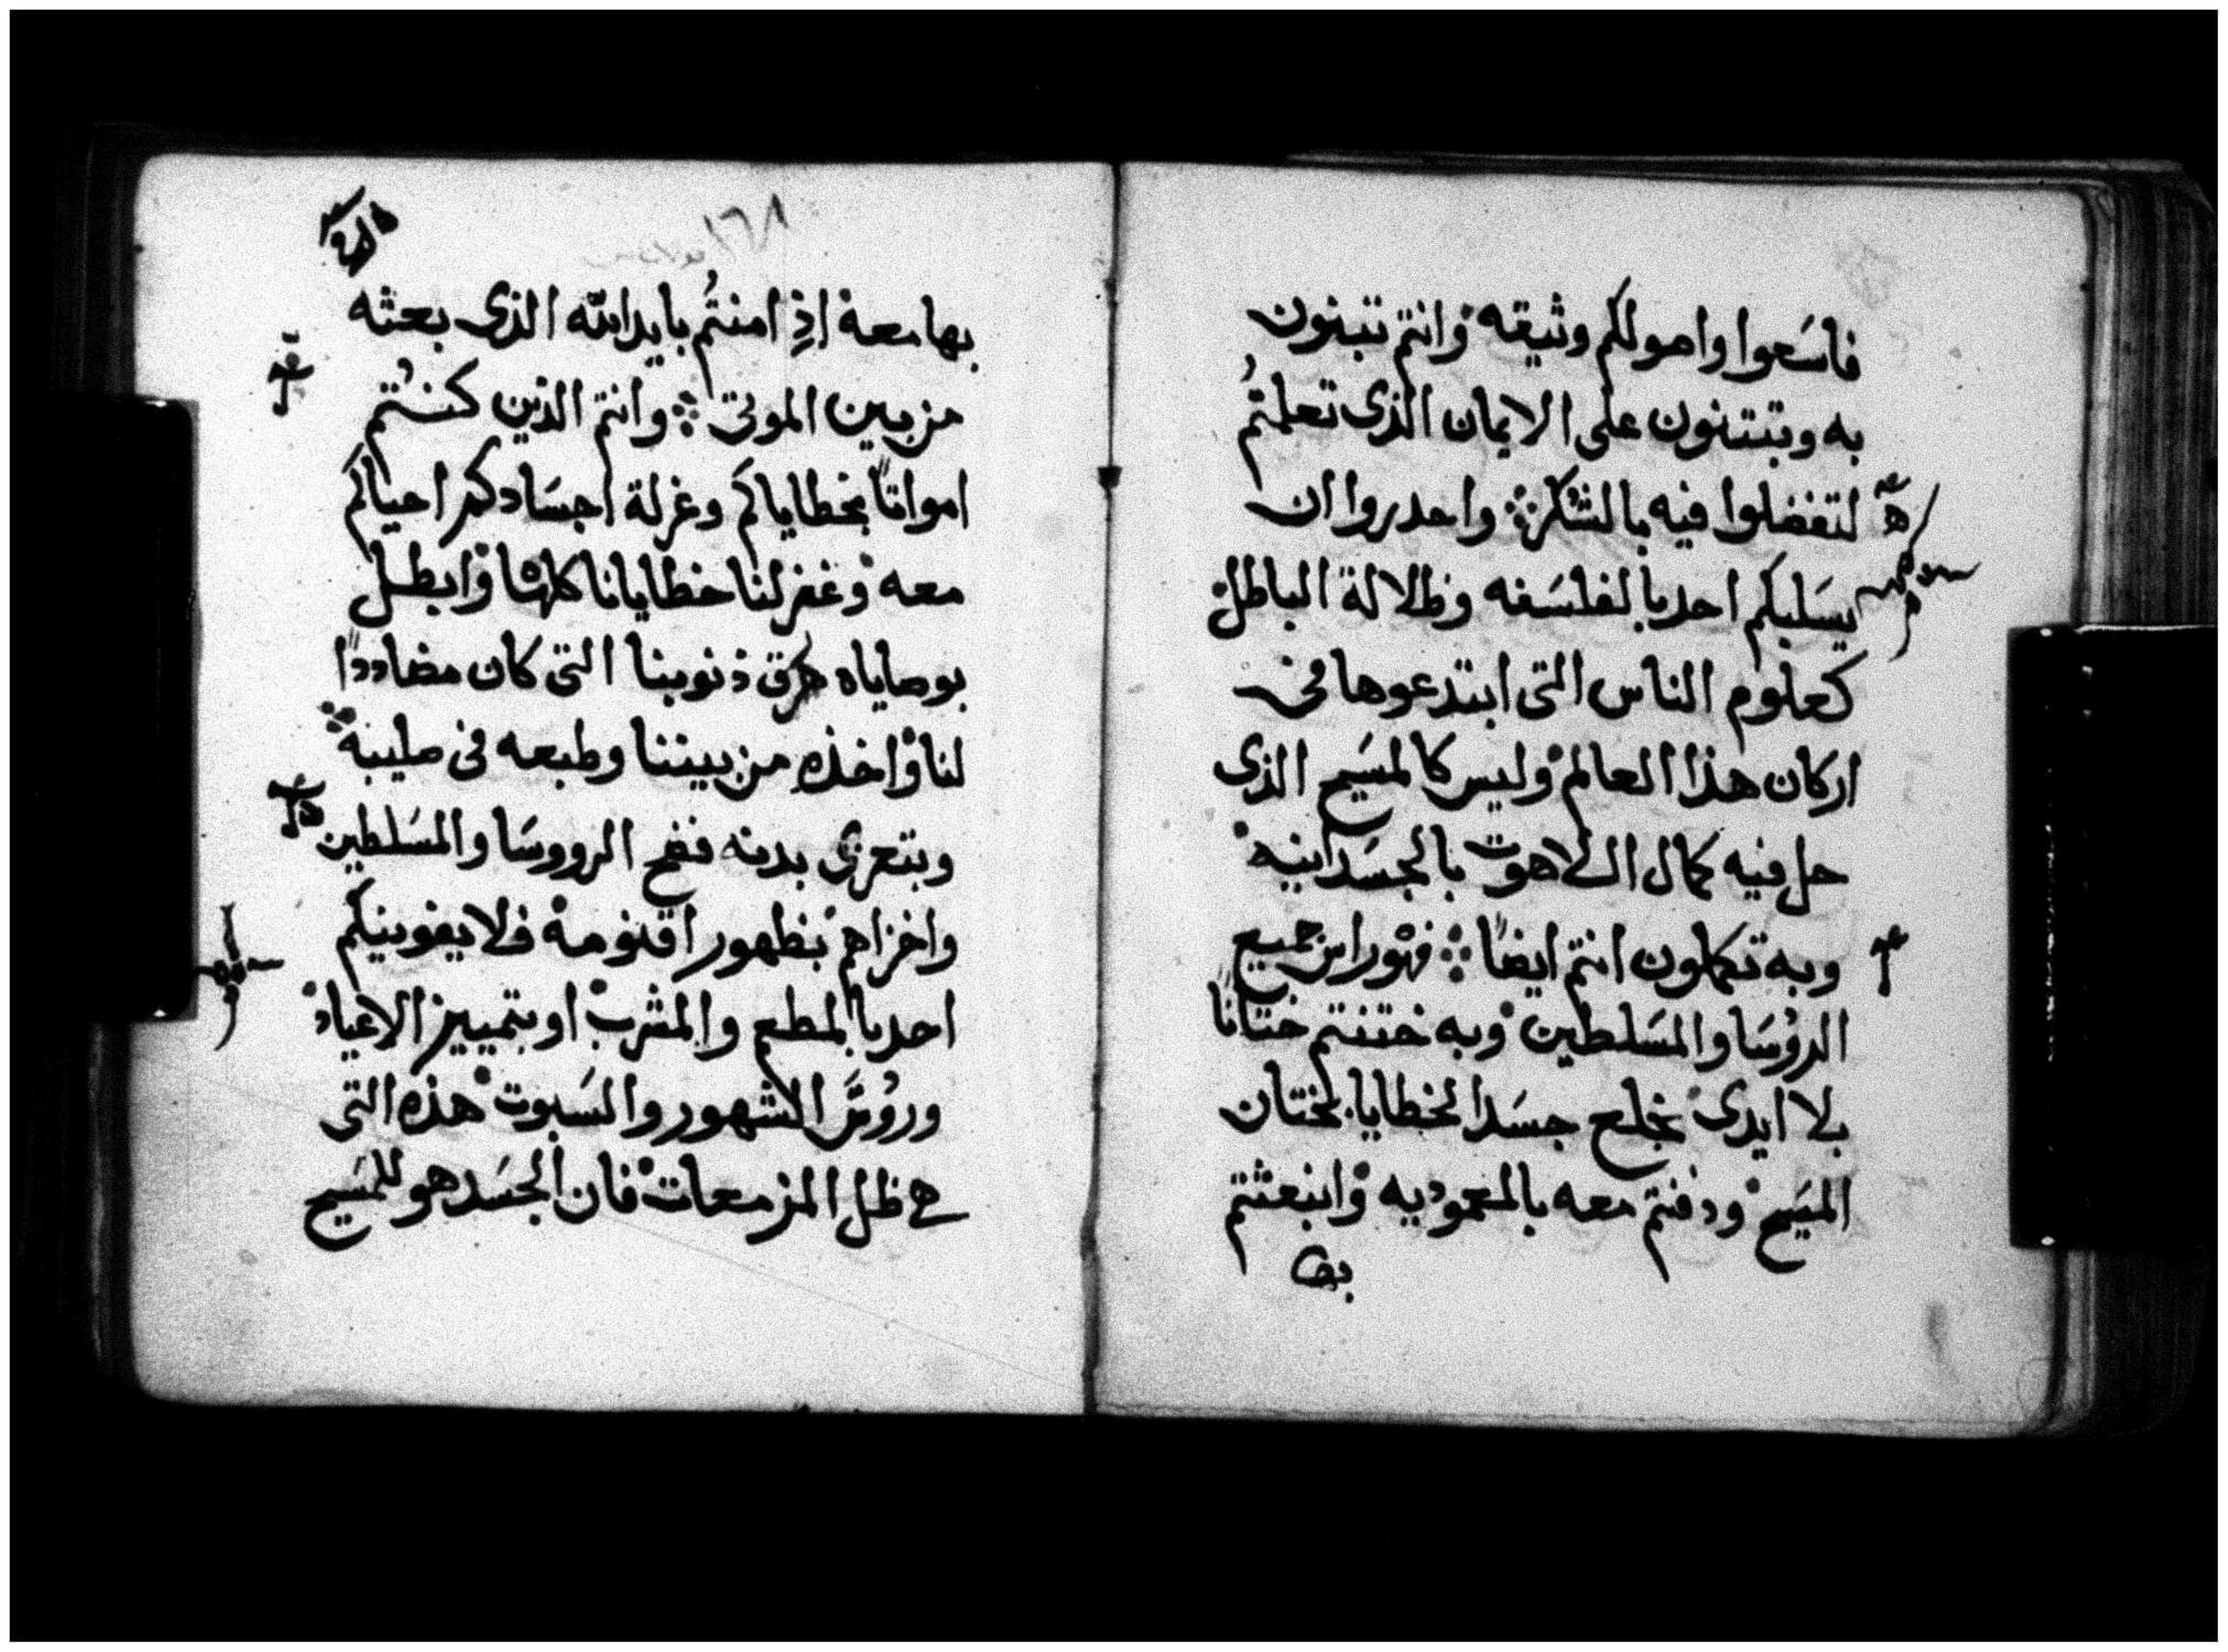 فاسَعوا وامولكم وثيقه وانتم تبنون
به وتبتنون على الايمان الذى تعلمتُم
لتفضلوا فيه بالشكر ܀ واحدروا ان
يسَلبكم احد بالفلسَفه وظلالة الباطل
كعلوم الناس التى ابتدعوها فى
اركان هذا العالم وليس كالمسَيح الذى
حل فيه كمال اللاهوت بالجسَدانيه
وبه تكملون انتم ايضاً ܀ فهو راس جميع
الروُسَا والمسَلطين وبه ختنتم ختاناً
بلا ايدى بخلع جسَد الخطايا بختان
المسَيح ودفنتم معه بالمعموديه وانبعثتم
بها
١٦٨
بها معه اذِ امنتُم بايد الله الذى بعثه
من بين الموتى ܀ وانتم الذين كنتُم
امواتاً بخطاياكم وغرلة اجسَادكم احياكم
معه وغفر لنا خطايانا كلها وابطل
بوصاياه هرق ذنوبنا التى كان مضاددًا
لنا واخذهِ من بيننا وطبعه فى صليبه
وبتعرى بدنه فضح الرووسَا والمسَلطين
واخزاهم بظهور اقنومه فلا يغوينكم
احد بالمطعم والمشرب او بتمييز الاعياد
وروُسَ الشهور والسَبوت هذه التى
هى ظل المزمعات فان الجسَد هو للمسَيح